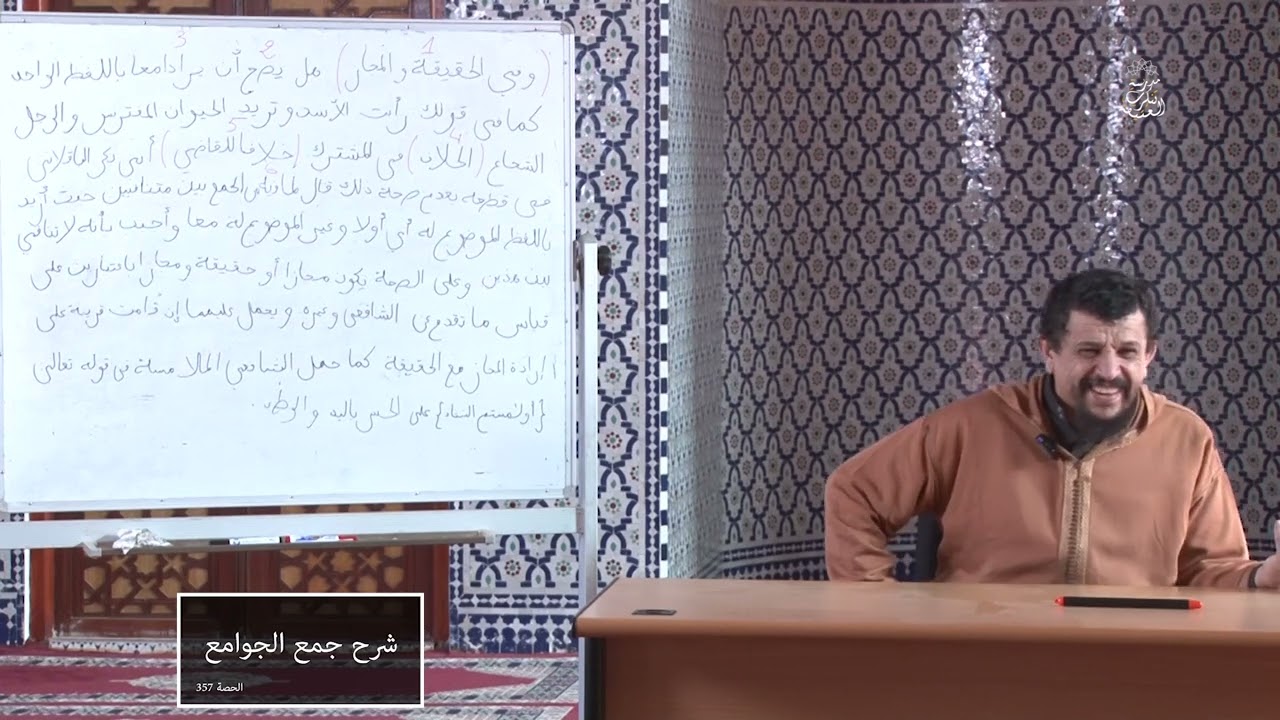 (وفي الحقيقة والمجاز) هل يصح أن يرادا معا باللفظ الواحد
كما في قولك رأيت الأسد وتريد الحيوان المفترس والرجل
الشجاع (الخلاف) في المشترك (خلافا للقاضي) أبي بكر الباقلاني
في قطعه بعدم صحة ذلك قال لما فيه من الجمع بين متنافيين حيث أريد
باللفظ الموضوع له أي أولا وغير الموضوع له معا وأجيب بأنه لا تنافي
بين هذين وعلى الصحة يكون مجازا أو حقيقة ومجازا باعتبارين على
قياس ما تقدم عن الشافعي وغيره ويحمل عليهما إن قامت قرينة على
إرادة المجاز مع الحقيقة كما حمل الشافعي الملامسة في قوله تعالى
{أو لمستم النساء} على الجس باليد والوطء.
1 2 3 4 5
مدرسة
شرح جمع الجوامع
الحصة 357